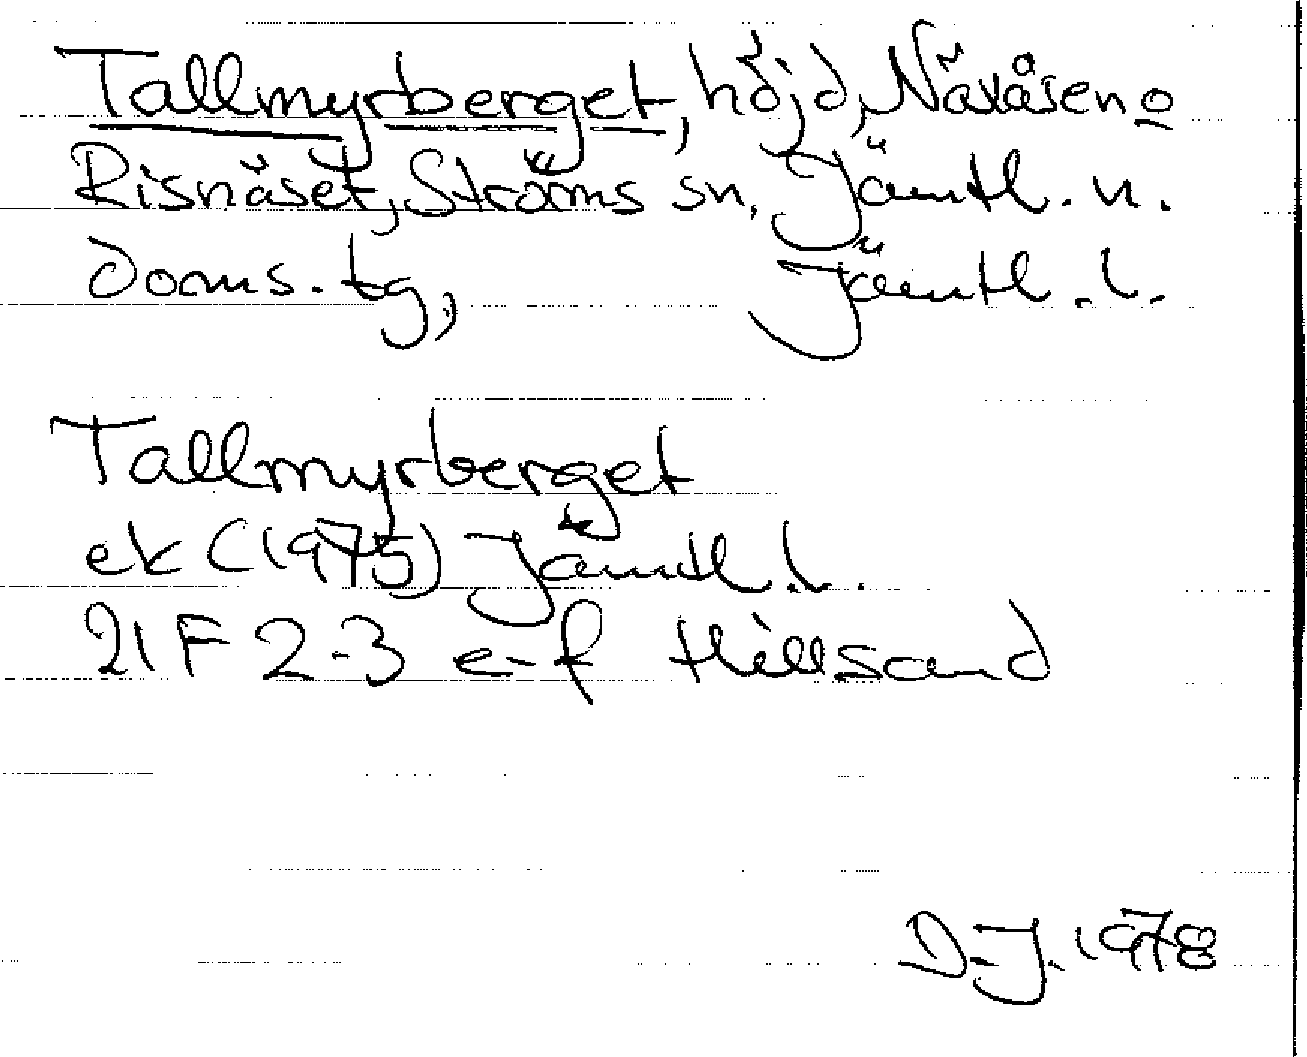 Tallmyrberget, höjd, Näsåsen o
Risnäset, Ströms sn, Jämtl. n.
doms. tg, Jämtl. l.
Tallmyrberget
ek (1975) Jämtl. l.
21 F 2-3 e-f Hillsand
D-J. 1978